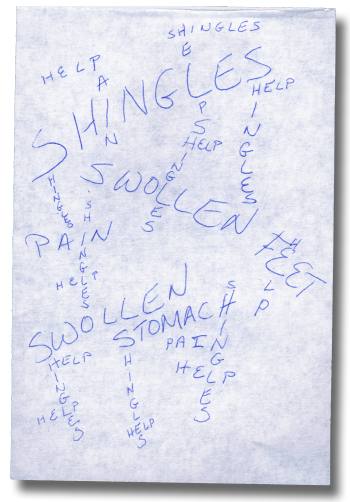 SHINGLES
HELP
PAIN
SHINGLES
HELP
HELP
SHINGLES
SHINGLES
HELP
SWOLLEN
SHINGLES
SHINGLES
PAIN
HELP
FEET
HELP
SWOLLEN
STOMACH
SHINGLES
PAIN
HELP
HELP
SHINGLES
SHINGLES
HELP
HELP